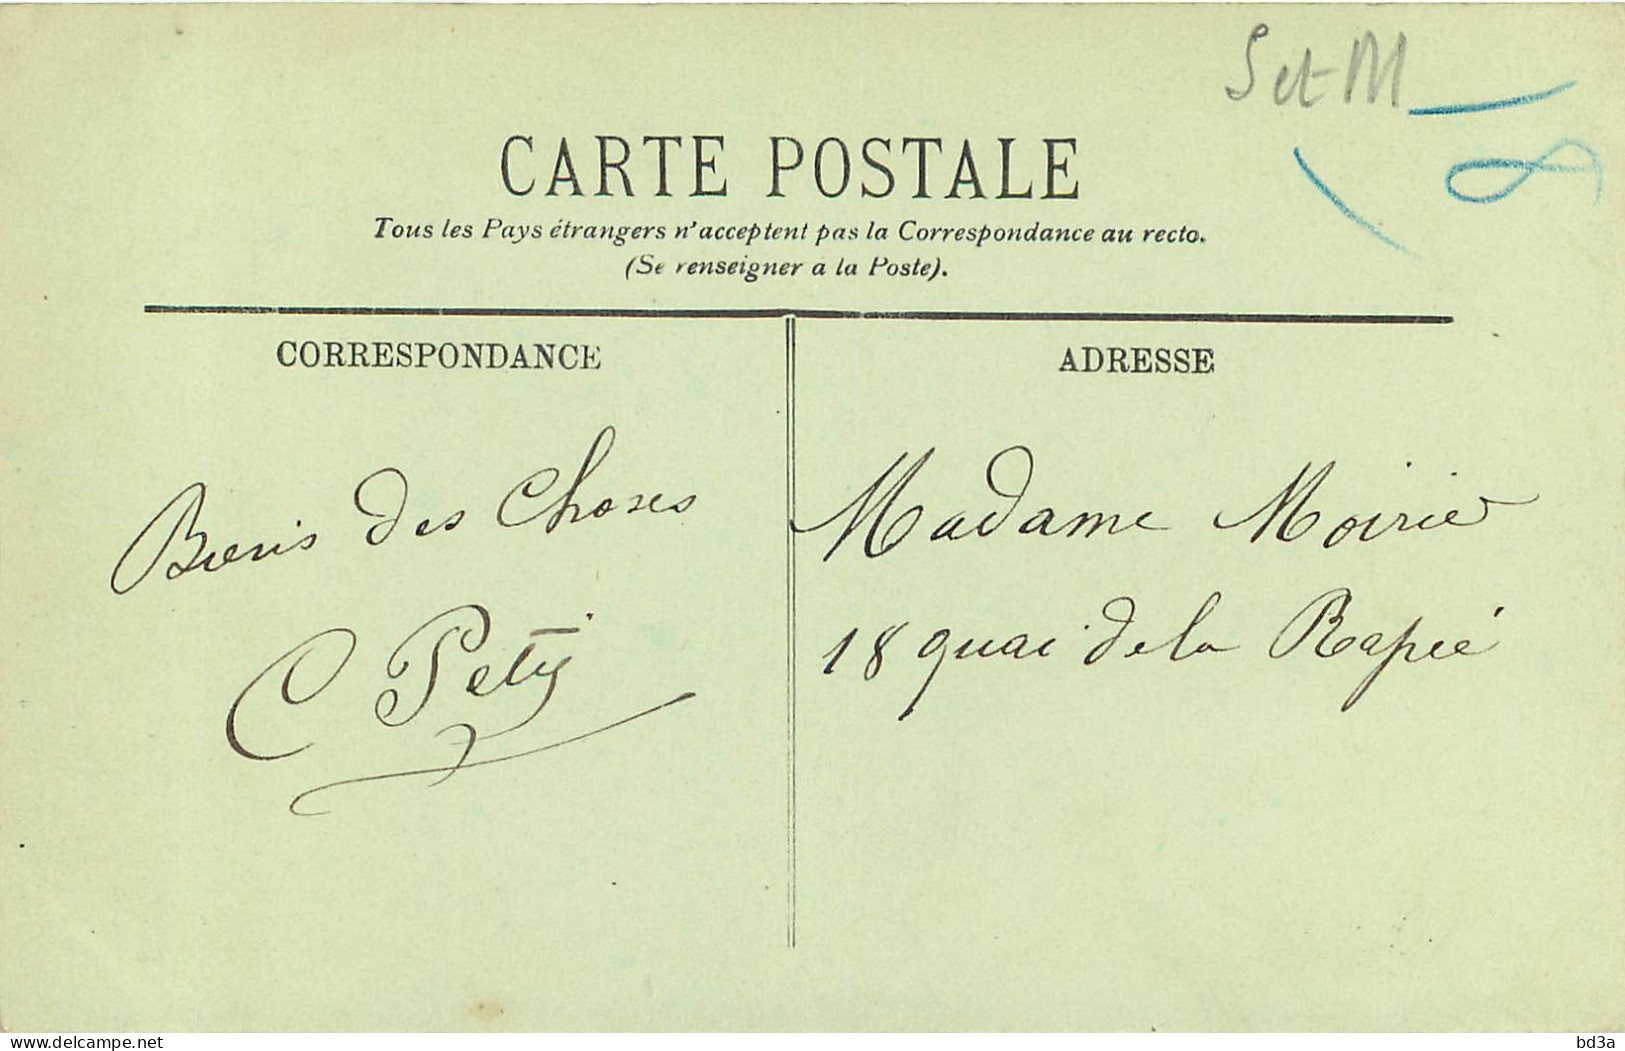 S et M
8
CARTE POSTALE
Tous les Pays étrangers n'acceptent pas la Correspondance au recto.
(Se renseigner a la Poste).
CORRESPONDANCE
Biens des Choses
C Petit
ADRESSE
Madame Moirier
18 quai de la Rapée
www.delcampe.net
bd3a